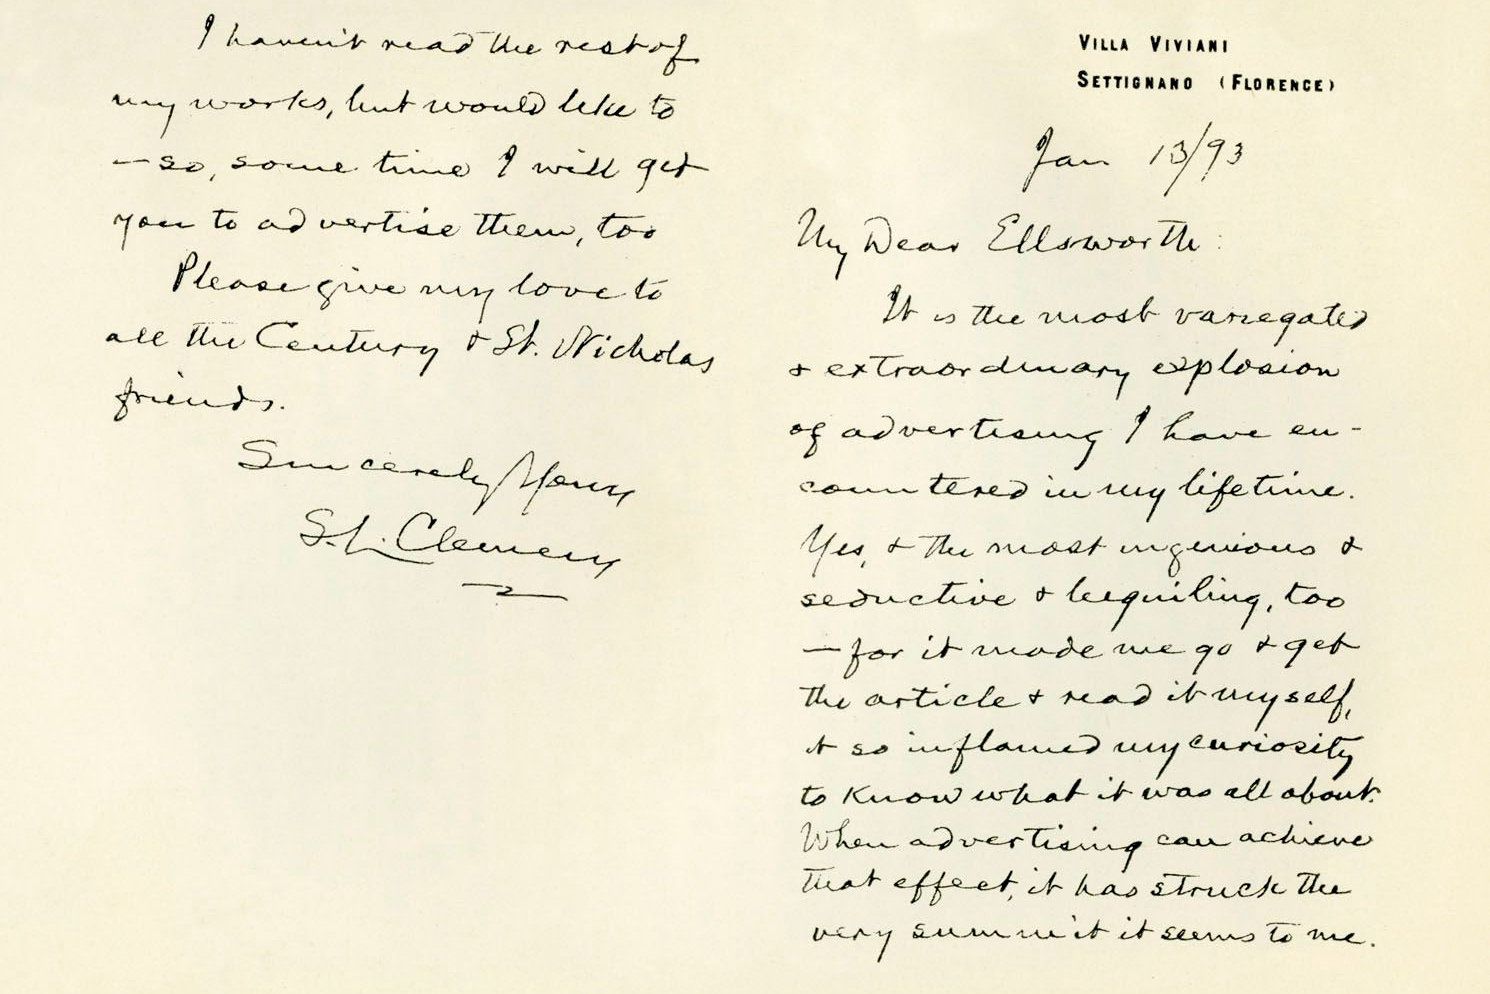 VILLA VIVIANI
SETTIGNANO (FLORENCE)
Jan 13/93
My Dear Ellsworth:
It is the most variegated
& extraordinary explosion
of advertising I have en-
countered in my lifetime.
Yes, & the most ingenious &
seductive & beguiling, too
—for it made me go & get
the article & read it myself,
it so inflamed my curiosity
to know what it was all about.
When advertising can achieve
that effect, it has struck the
very summit it seems to me.
I haven't read the rest of
my works, but would like to
—so, some time I will get
you to advertise them, too
Please give my love to
all the Century & St. Nicholas
friends.
Sincerely Yours
S. L. Clemens